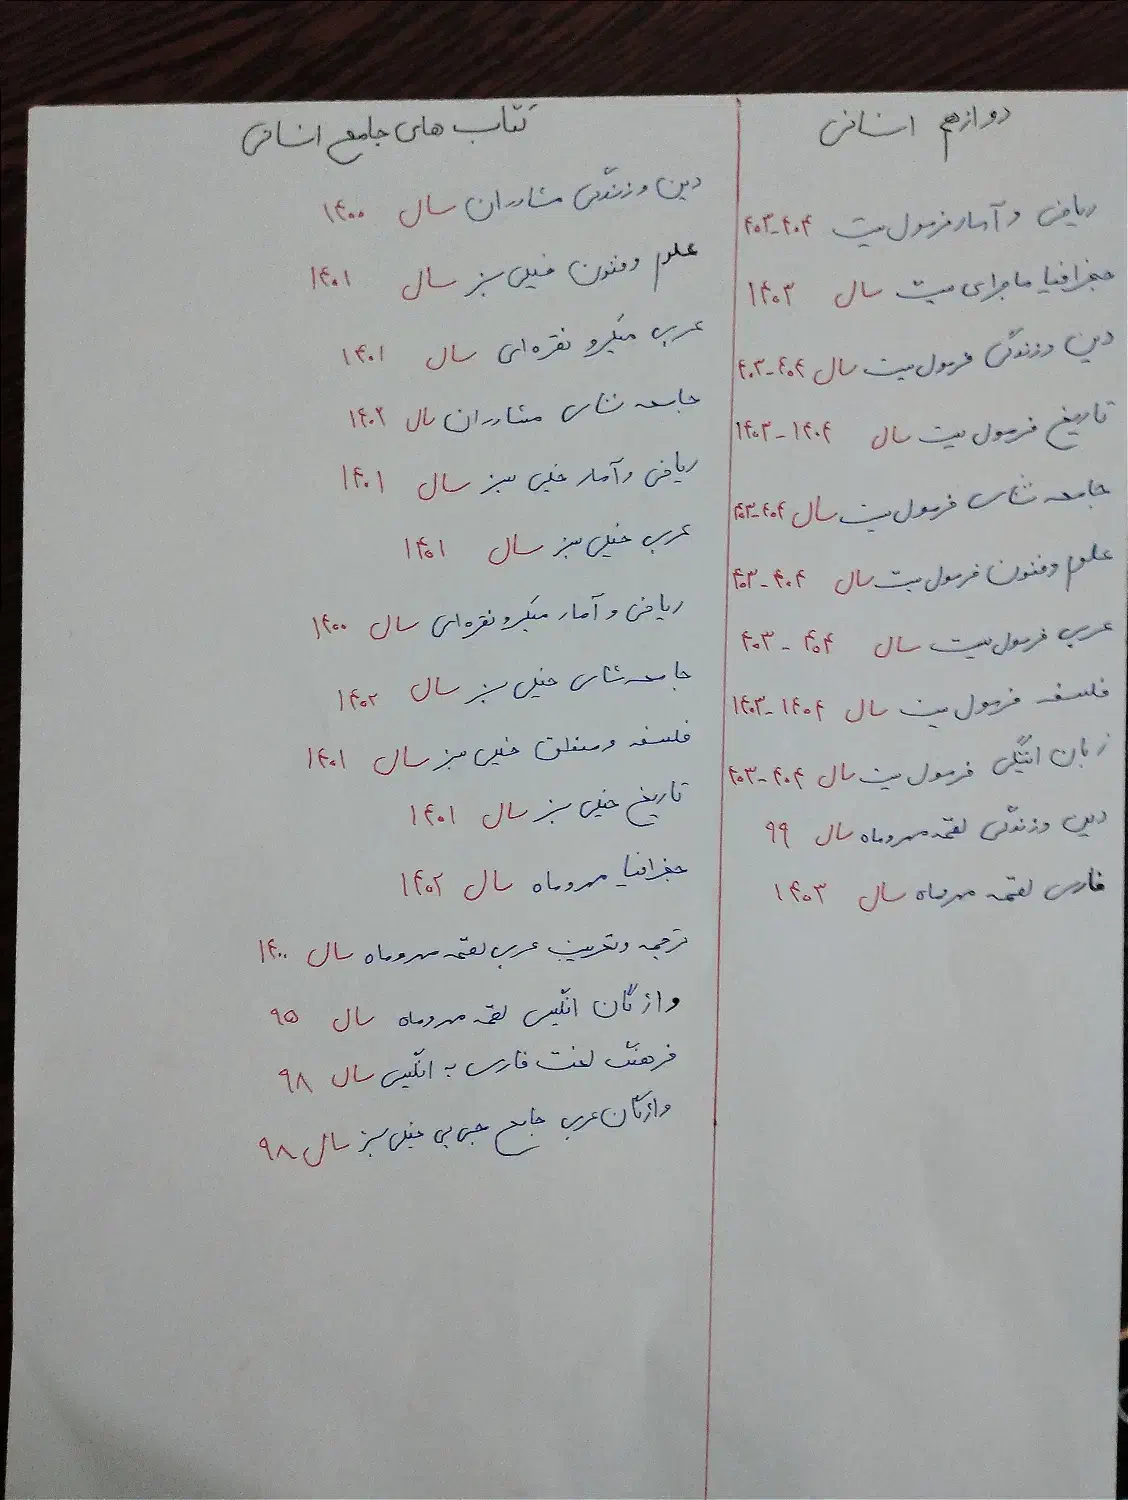 دوازهم انسانی
ریاضی و آمار فرمول بیست ۴۰۴-۴۰۳
جغرافیا ماجرای بیست سال ۱۴۰۳
دین و زندگی فرمول بیست سال ۴۰۴-۴۰۳
تاریخ فرمول بیست سال ۱۴۰۴-۱۴۰۳
جامعه شناسی فرمول بیست سال ۴۰۴-۴۰۳
علوم و فنون فرمول بیست سال ۴۰۴-۴۰۳
عربی فرمول بیست سال ۴۰۴-۴۰۳
فلسفه فرمول بیست سال ۱۴۰۴-۱۴۰۳
زبان انگلیسی فرمول بیست سال ۴۰۴-۴۰۳
دین و زندگی لقمه مهروماه سال ۹۹
فارسی لقمه مهروماه سال ۱۴۰۳
کتاب های جامع انسانی
دین و زندگی مشاوران سال ۱۴۰۰
علوم و فنون خیلی سبز سال ۱۴۰۱
عربی میکرو نقره‌ای سال ۱۴۰۱
جامعه شناسی مشاوران سال ۱۴۰۲
ریاضی و آمار خیلی سبز سال ۱۴۰۱
عربی خیلی سبز سال ۱۴۰۱
ریاضی و آمار میکرو نقره‌ای سال ۱۴۰۰
جامعه شناسی خیلی سبز سال ۱۴۰۲
فلسفه و منطق خیلی سبز سال ۱۴۰۱
تاریخ خیلی سبز سال ۱۴۰۱
جغرافیا مهروماه سال ۱۴۰۲
ترجمه و تعریب عربی لقمه مهروماه سال ۱۴۰۰
واژگان انگلیسی لقمه مهروماه سال ۹۵
فرهنگ لغت فارسی به انگلیسی سال ۹۸
واژگان عربی جامع جی بی خیلی سبز سال ۹۸